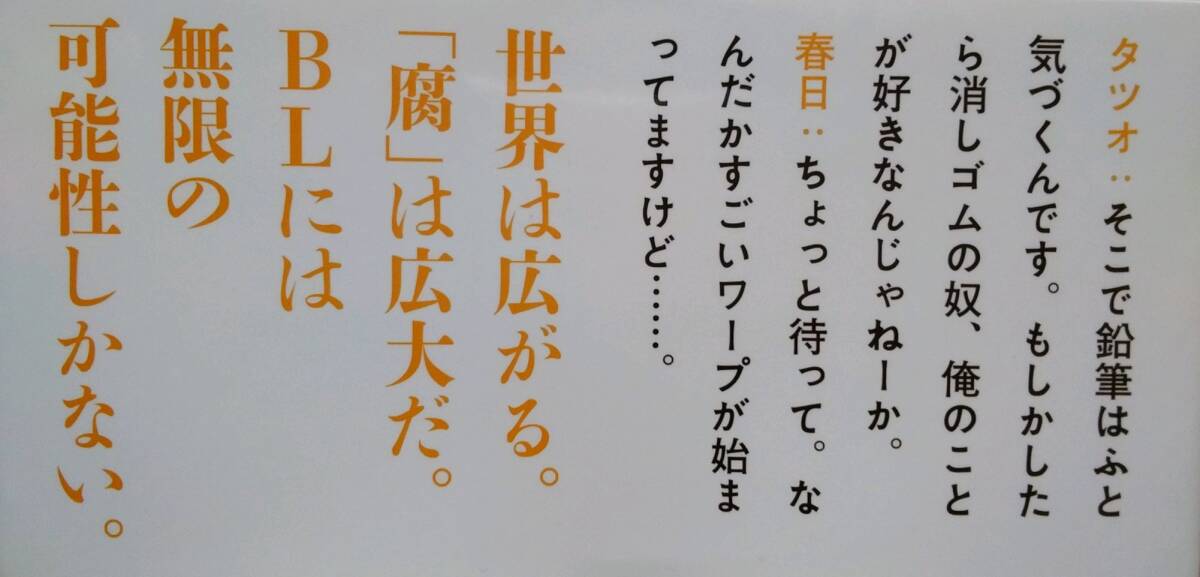 タツオ：そこで鉛筆はふと
気づくんです。もしかした
ら消しゴムの奴、俺のこと
が好きなんじゃねーか。
春日：ちょっと待って。な
んだかすごいワープが始ま
ってますけど……。
世界は広がる。
「腐」は広大だ。
BLには
無限の
可能性しかない。